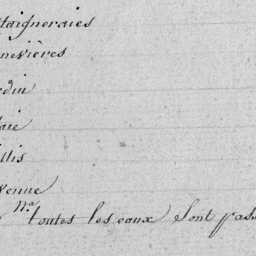 taigneraies
nevières
rdin
aie
llis
venue
nta toutes les eaux sont pas